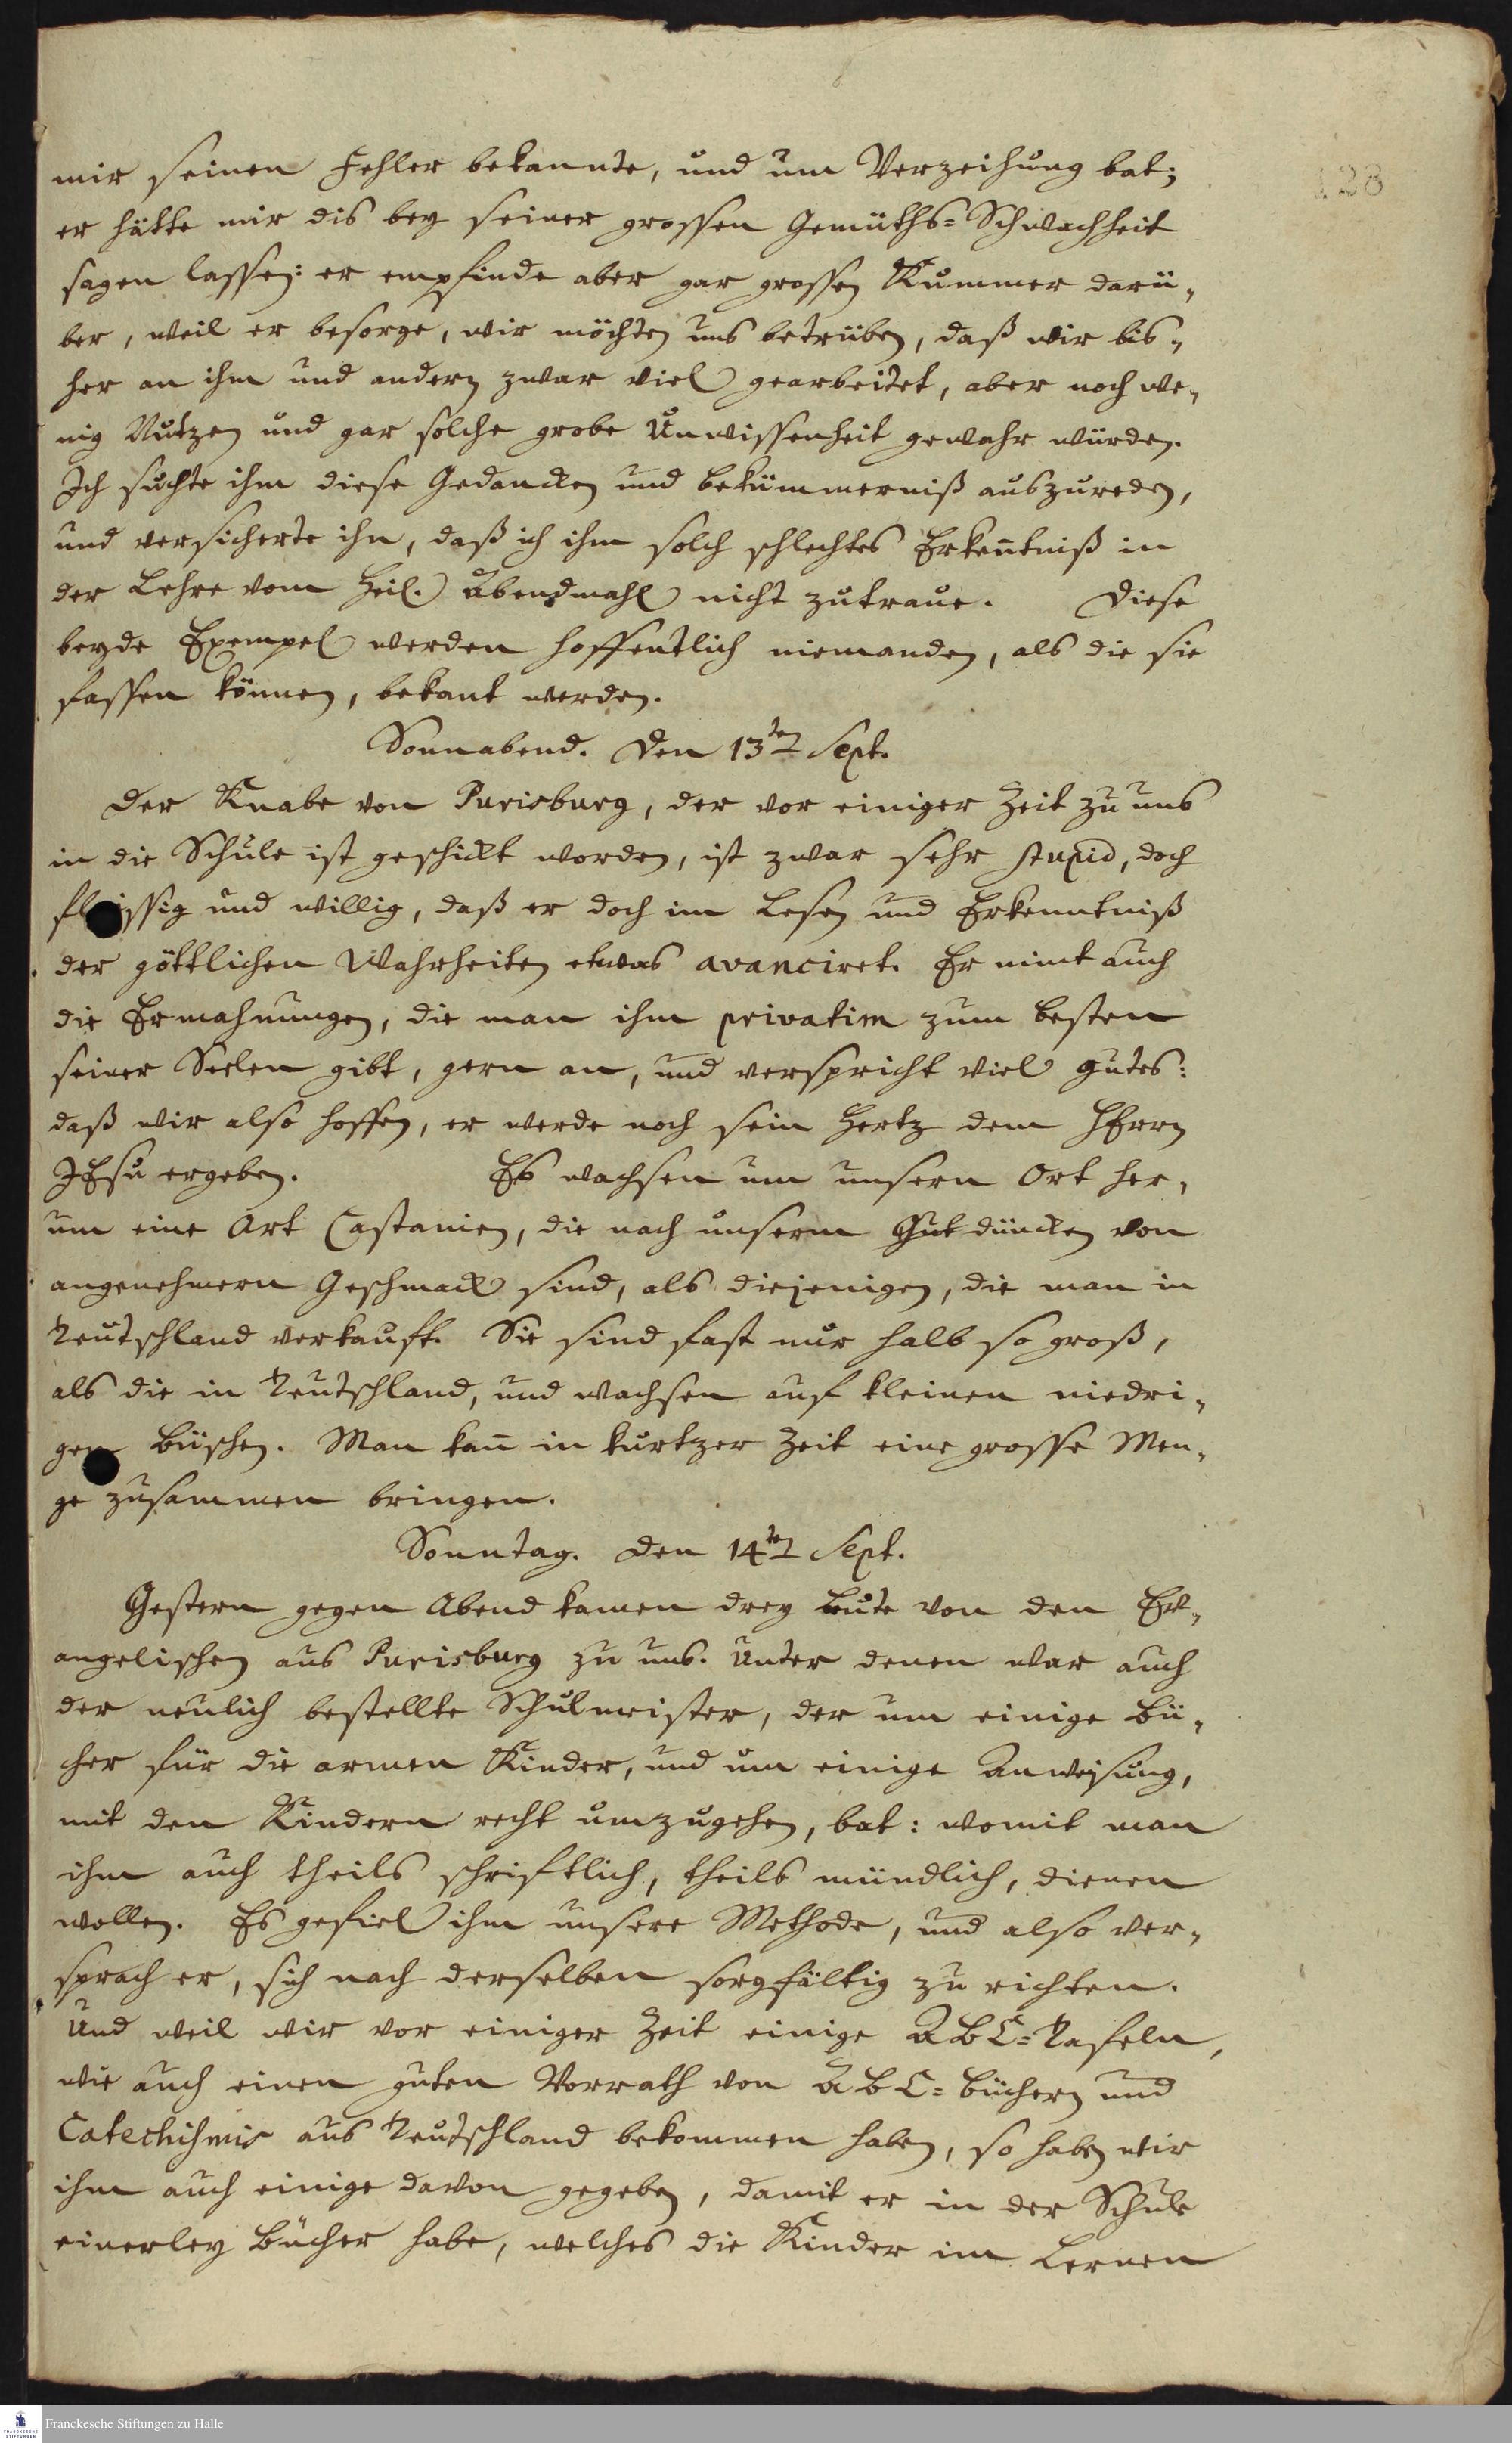 128
mir seinen Fehler bekannte, und um Verzeihung bat;
er hätte mir dis bey seiner grossen Gemüths=Schwachheit
sagen lassen: er empfinde aber gar grossen Kummer darü„
ber, weil er besorge, wir möchten uns betrüben, daß wir bis„
her an ihm und andern zwar viel gearbeitet, aber noch we„
nig Nutzen und gar solche grobe Unwissenheit gewahr würden.
Ich suchte ihm diese Gedancken und Bekümmerniß auszureden,
und versicherte ihn, daß ich ihm solch schlechtes Erken̄tniß in
der Lehre vom Heil. Abendmahl nicht zutraue. Diese
beyde Exempel werden hoffentlich niemanden, als die sie
fassen können, bekant werden.
Sonnabend. Den 13ten Sept.
Der Knabe von Purisburg, der vor einiger Zeit zu uns
in die Schule ist geschickt worden, ist zwar sehr stupid, doch
fleissig und willig, daß er doch im Lesen und Erkenntniß
der göttlichen Wahrheiten etwas avanciret. Er nimt auch
die Ermahnungen, die man ihm privatim zum besten
seiner Seelen gibt, gern an, und verspricht viel gutes:
daß wir also hoffen, er werde noch sein Hertz dem HErrn
JEsu ergeben. Es wachsen um unsern Ort her„
um eine Art Castanien, die nach unserm Gutdüncken von
angenehmern Geschmack sind, als diejenigen, die man in
Teutschland verkauft. Sie sind fast nur halb so groß,
als die in Teutschland, und wachsen auf kleinen niedri„
gen Büschen. Man kan̄ in kurtzer Zeit eine grosse Men„
ge zusammen bringen.
Sonntag. Den 14ten Sept.
Gestern gegen Abend kamen drey Leute von den Ev„
angelischen aus Purisburg zu uns. Unter denen war auch
der neulich bestellte Schulmeister, der um einige Bü„
cher für die armen Kinder, und um einige Anweisung,
mit den Kindern recht umzugehen, bat: womit man
ihm auch theils schriftlich, theils mündlich, dienen
wollen. Es gefiel ihm unsere Methode, und also ver„
sprach er, sich nach derselben sorgfältig zu richten.
Und weil wir vor einiger Zeit einige ABC=Tafeln,
wie auch einen guten Vorrath von ABC=Büchern und
Catechismis aus Teutschland bekommen haben, so haben wir
ihm auch einige davon gegeben, damit er in der Schule
einerley Bücher habe, welches die Kinder im Lernen
FRANCKESCHE
STIFTUNGEN
Franckesche Stiftungen zu Halle